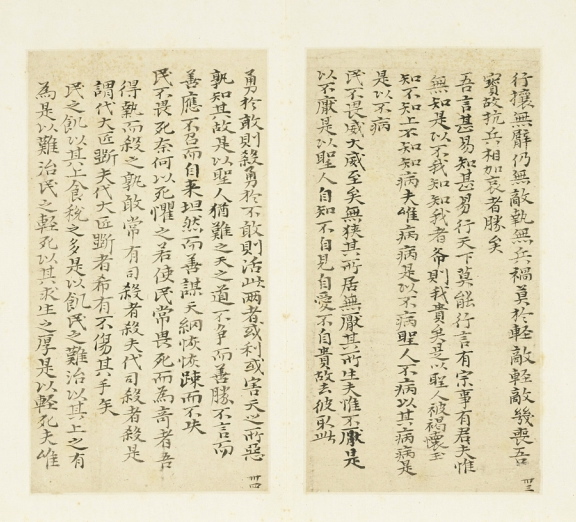 行攘無臂仍無敵執無兵禍莫於輕敵輕敵幾喪吾
寶故抗兵相加哀者勝矣
吾言甚易知甚易行天下莫能行言有宗事有君夫惟
無知是以不我知知我者希則我貴矣是以聖人被褐懷玉
知不知上不知知病夫唯病病是以不病聖人不病以其病病是
是以不病
民不畏威大威至矣無狹其所居無厭其所生夫惟不厭是
以不厭是以聖人自知不自見自愛不自貴故去彼取此
卅三
勇於敢則殺勇於不敢則活此兩者或利或害天之所惡
孰知其故是以聖人猶難之天之道不爭而善勝不言而
善應不召而自来坦然而善謀天網恢恢踈而不失
民不畏死奈何以死懼之若使民常畏死而為奇者吾
得執而殺之孰敢常有司殺者殺夫代司殺者殺是
謂代大匠斲夫代大匠斲者希有不傷其手矣
民之飢以其上食稅之多是以飢民之難治以其上之有
為是以難治民之輕死以其求生之厚是以輕死夫唯
卅四